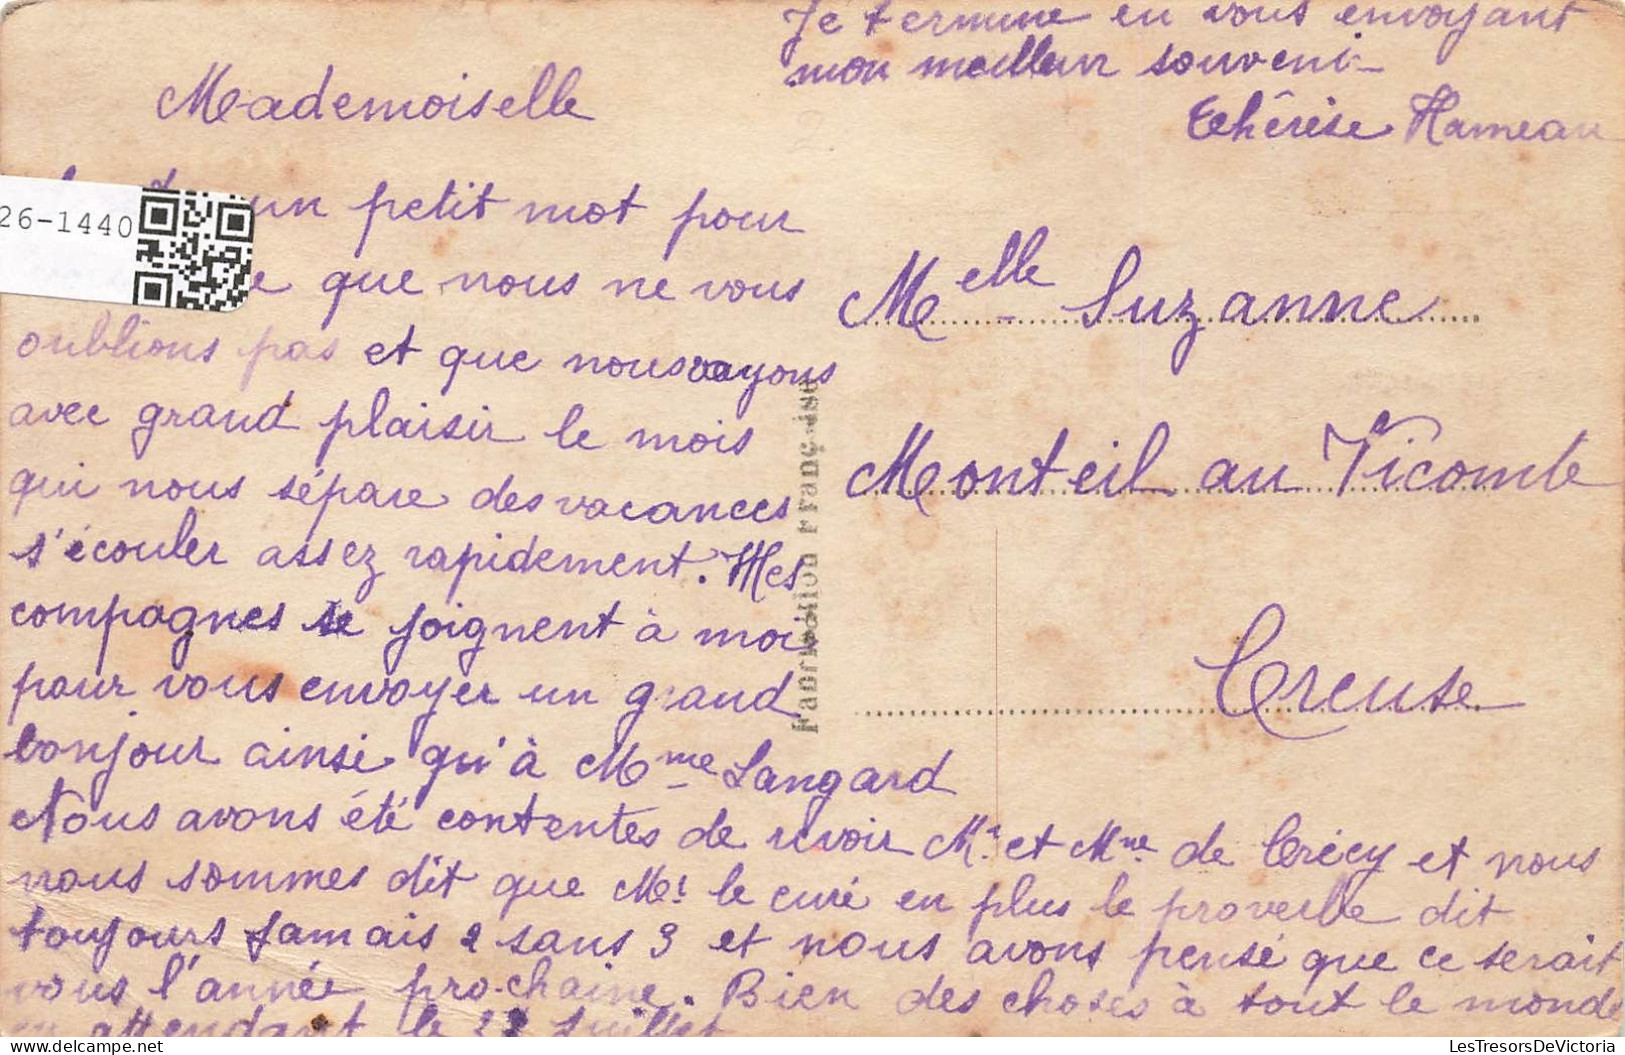 Mademoiselle
un petit mot pour
que nous ne vous
oublions pas et que nous voyons
avec grand plaisir le mois
qui nous sépare des vacances
s'écouler assez rapidement. Mes
compagnes se joignent à moi
pour vous envoyer un grand
bonjour ainsi qu'à Mme Langard
Nous avons été contentes de revoir Mr. et Mme de Crécy et nous
nous sommes dit que Mr. le curé en plus le proverbe dit
toujours jamais 2 sans 3 et nous avons pensé que ce serait
vous l'année prochaine. Bien des choses à tout le monde
en attendant le juillet
Je termine en vous envoyant
mon meilleur souvenir
Thérèse Hameau
Melle Suzanne
Monteil au Vicomte
Creuse
Fabrication Française
26-1440
LesTresorsDeVictoria